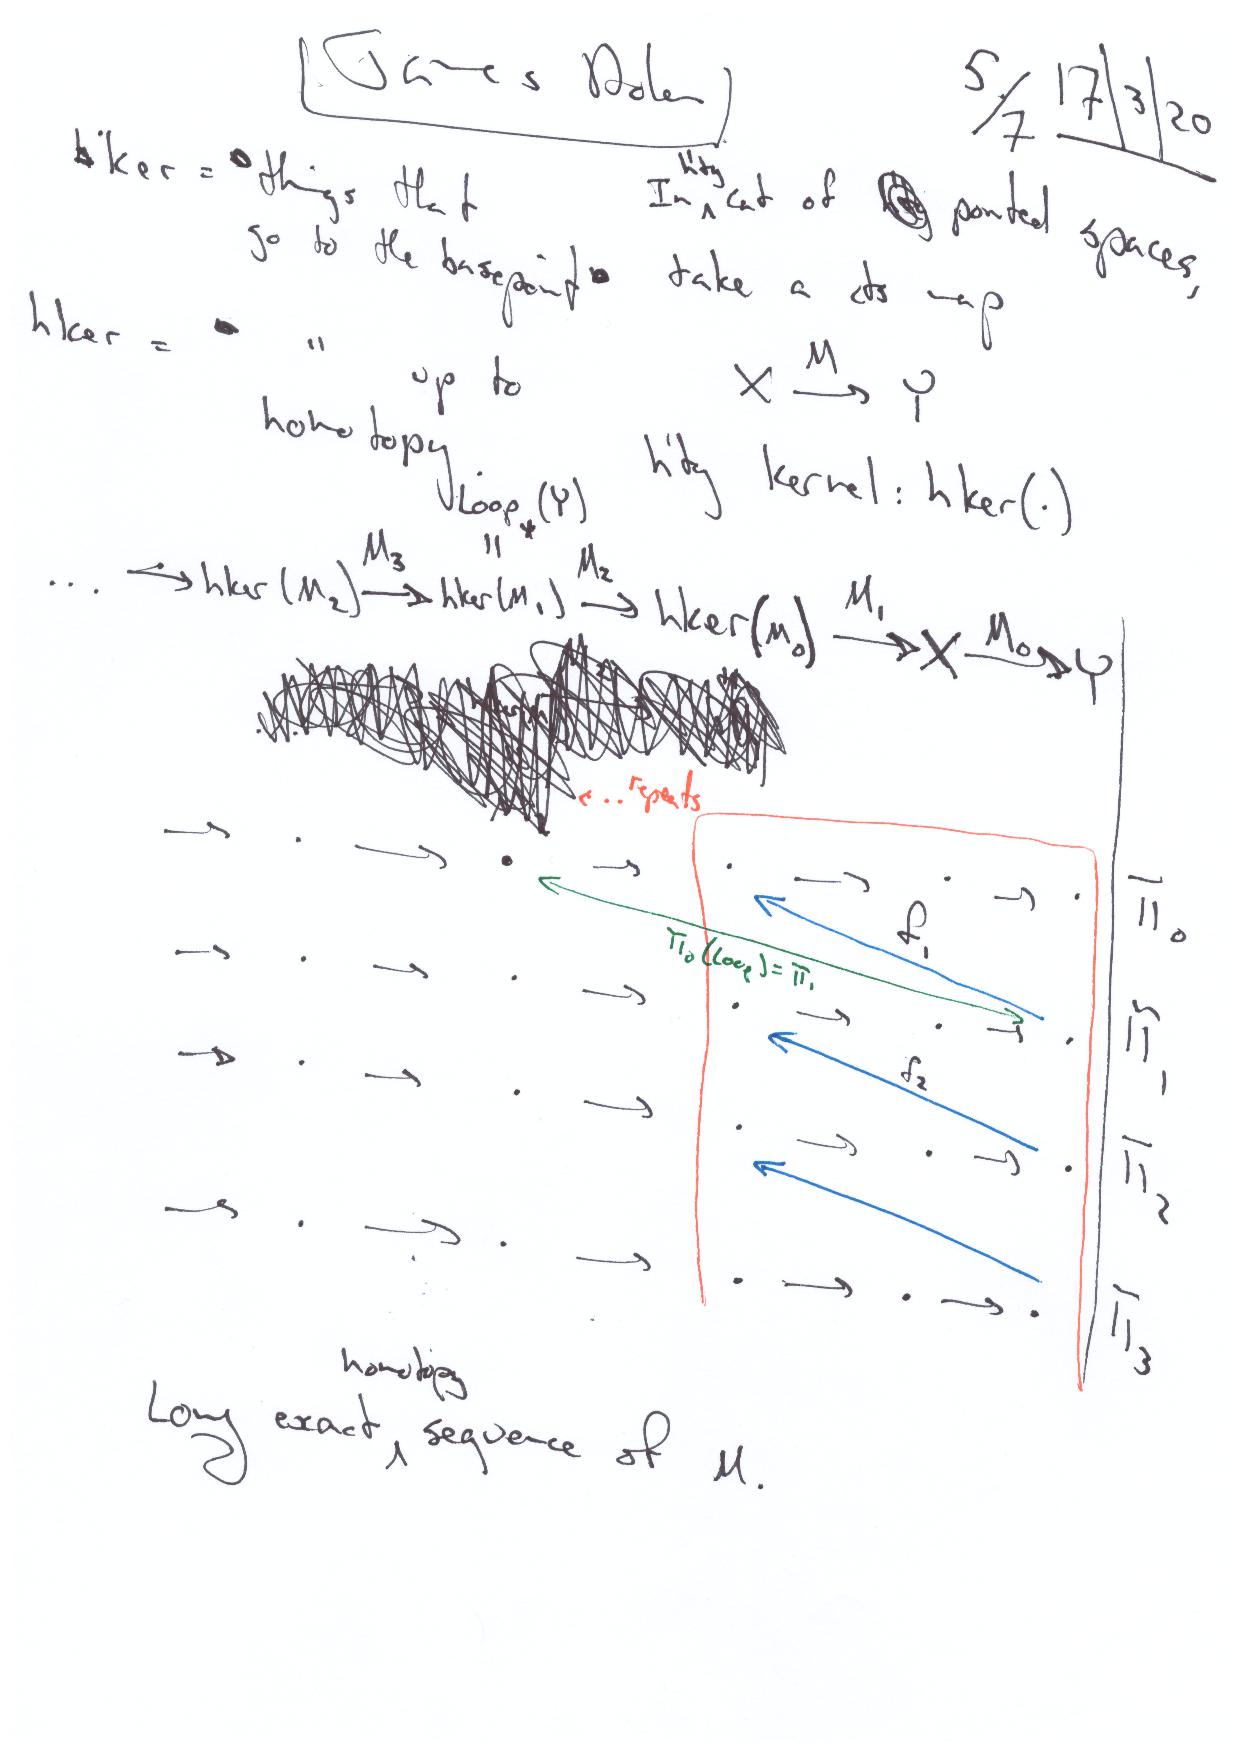 James Dolan
5/7 17/3/20
ker = • things that
go to the basepoint •
hker = • "
up to
homotopy
In h'ty cat of pointed spaces,
take a cts map
X M→ Y
h'ty kernel: hker(·)
Loop*(Y)
=
... → hker(M₂) M₃→ hker(M₁) M₂→ hker(M₀) M₁→ X M₀→ Y
←... repeats
π₀
f₁
π₀(Loop) = π₁
π₁
f₂
π₂
π₃
Long exact homotopy sequence of M.